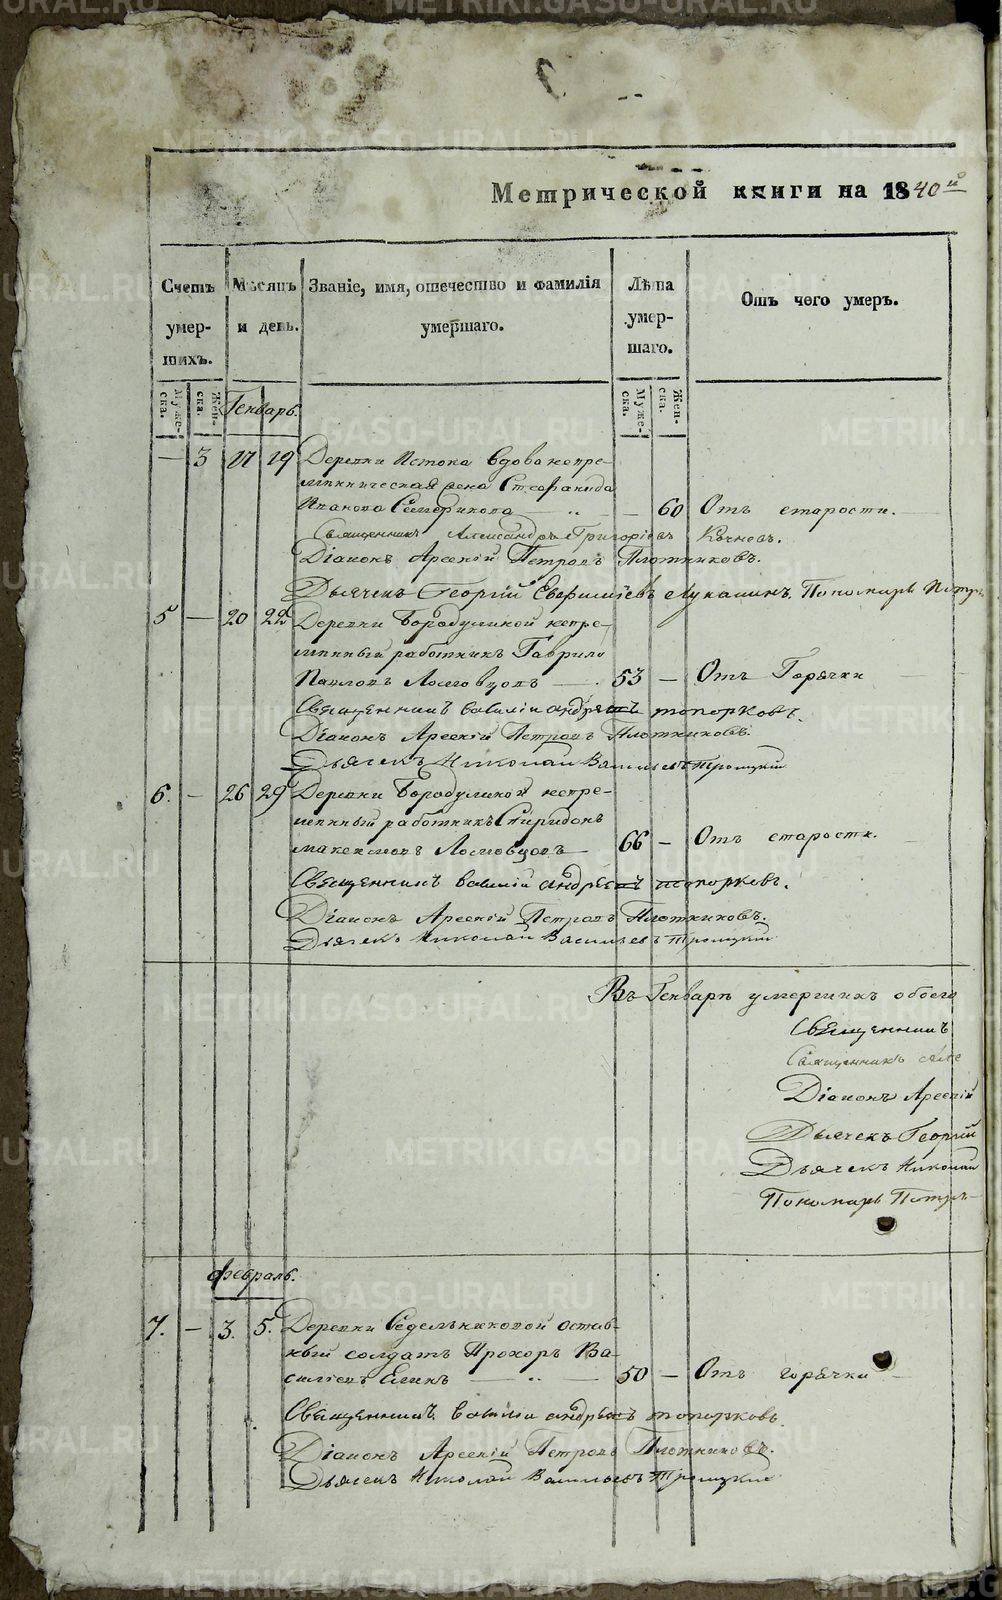 Метрической книги на 1840й
Счетъ умер-шихъ.
Мѣсяцъ и день.
Званіе, имя, отечество и фамилія умершаго.
Лѣта умер-шаго.
Отъ чего умеръ.
Муже-ска.
Жен-ска.
Генварь.
Муже-ска.
Жен-ска.
— 3 17 19 Деревни Истока вдова непре-
мѣнническая жена Стефанида
Иванова Семерикова — 60 Отъ старости.
Священникъ Александръ Григоріевъ Кочневъ.
Діаконъ Арсеній Петровъ Плотниковъ.
Дьячекъ Георгій Евфиміевъ Лукашинъ. Пономарь Петръ
5 — 20 22 Деревни Бородулиной непре-
мѣнный работникъ Гаврило
Павловъ Лосговцовъ — 53 — Отъ Горячки
Священникъ Василій Андреевъ Топорковъ.
Діаконъ Арсеній Петровъ Плотниковъ.
Дьячекъ Николай Васильевъ Троицкій
6. — 26 29 Деревни Бородулиной непре-
мѣнный работникъ Спиридонъ
Максимовъ — 66 — Отъ старости.
Священникъ Василій Андреевъ Топорковъ.
Діаконъ Арсеній Петровъ Плотниковъ.
Дьячекъ Николай Васильевъ Троицкій
Въ Генварѣ умершихъ обоего
Священникъ
Священникъ
Діаконъ Арсеній
Дьячекъ Георгій
Дьячекъ Николай
Пономарь Петръ
Февраль.
7. — 3. 5. Деревни Седельниковой отстав-
ный солдатъ Прохоръ Ва-
сильевъ Елинъ — 50 — Отъ горячки
Священникъ Василій Андреевъ Топорковъ
Діаконъ Арсеній Петровъ Плотниковъ.
Дьячекъ Николай Васильевъ Троицкій
METRIKI.GASO-URAL.RU